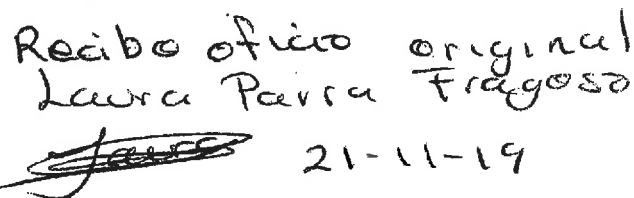 Recibo oficio original
Laura Parra Fragoso
Laura 21-11-19